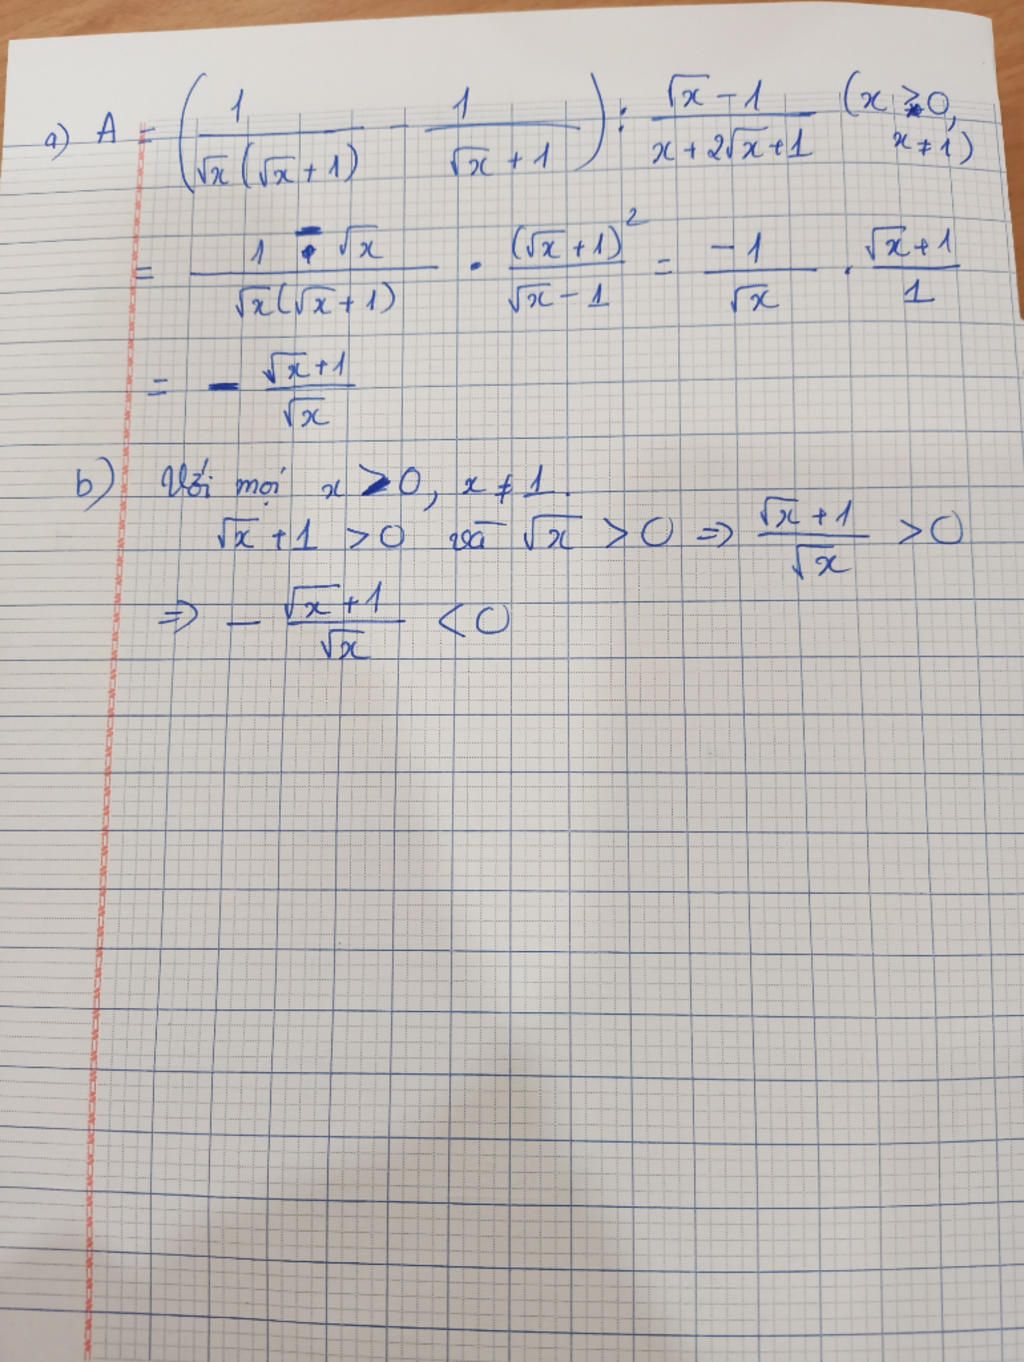 a) A = (1/(√x(√x+1)) - 1/(√x+1)) : (√x-1)/(x+2√x+1) (x > 0, x ≠ 1)
= (1 - √x)/(√x(√x+1)) · (√x+1)²/(√x-1) = -1/√x · (√x+1)/1
= - (√x+1)/√x
b) Với mọi x > 0, x ≠ 1.
√x+1 > 0 và √x > 0 => (√x+1)/√x > 0
=> - (√x+1)/√x < 0